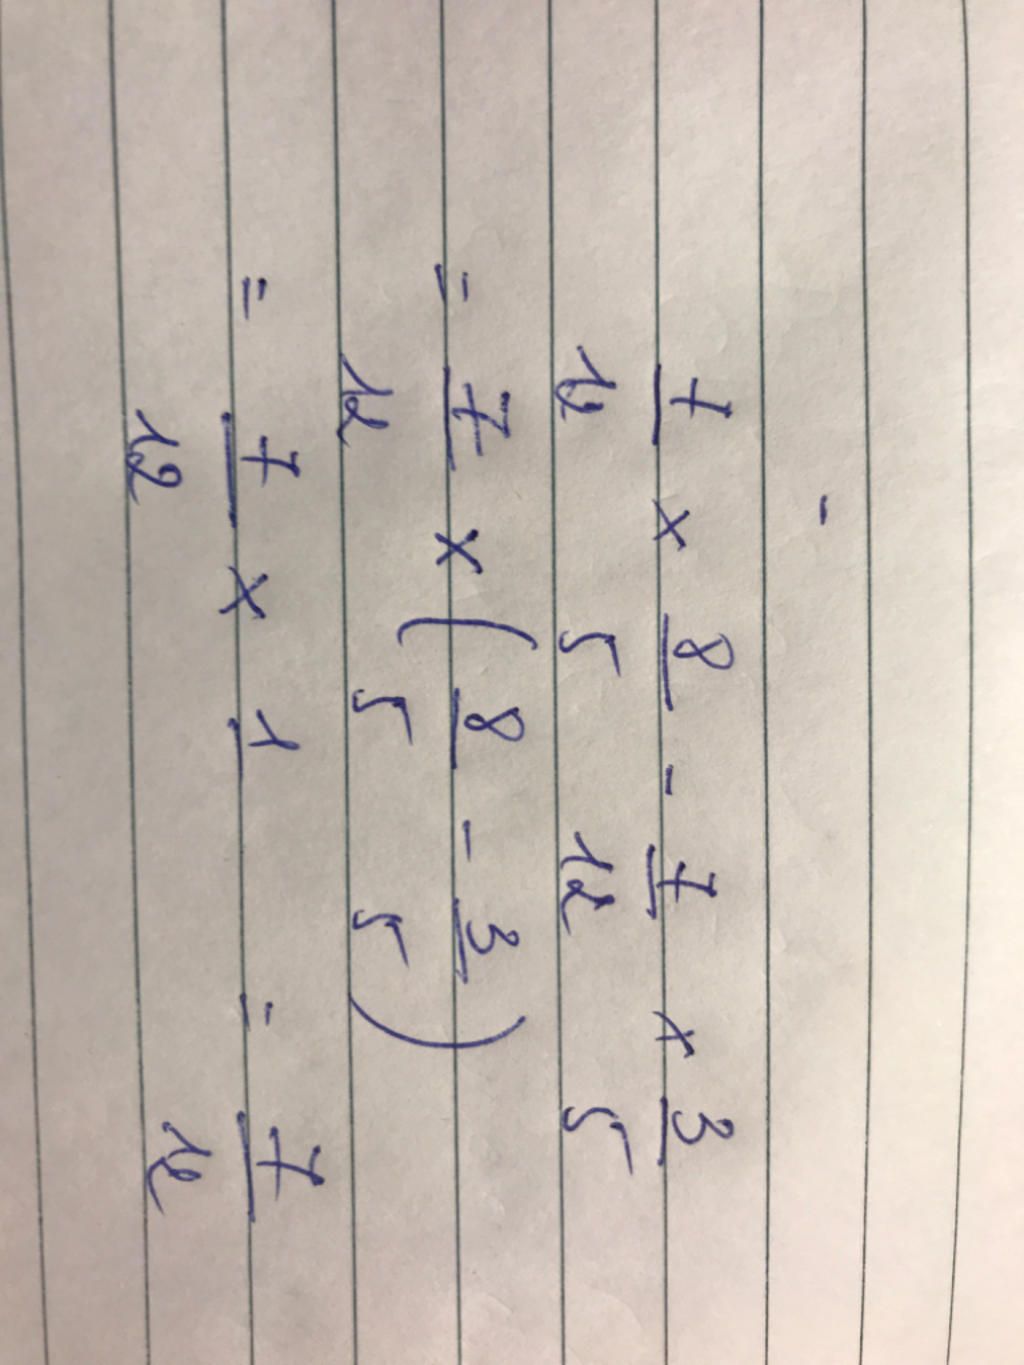 -
7/12 x 8/5 - 7/12 x 3/5
= 7/12 x (8/5 - 3/5)
= 7/12 x 1 = 7/12